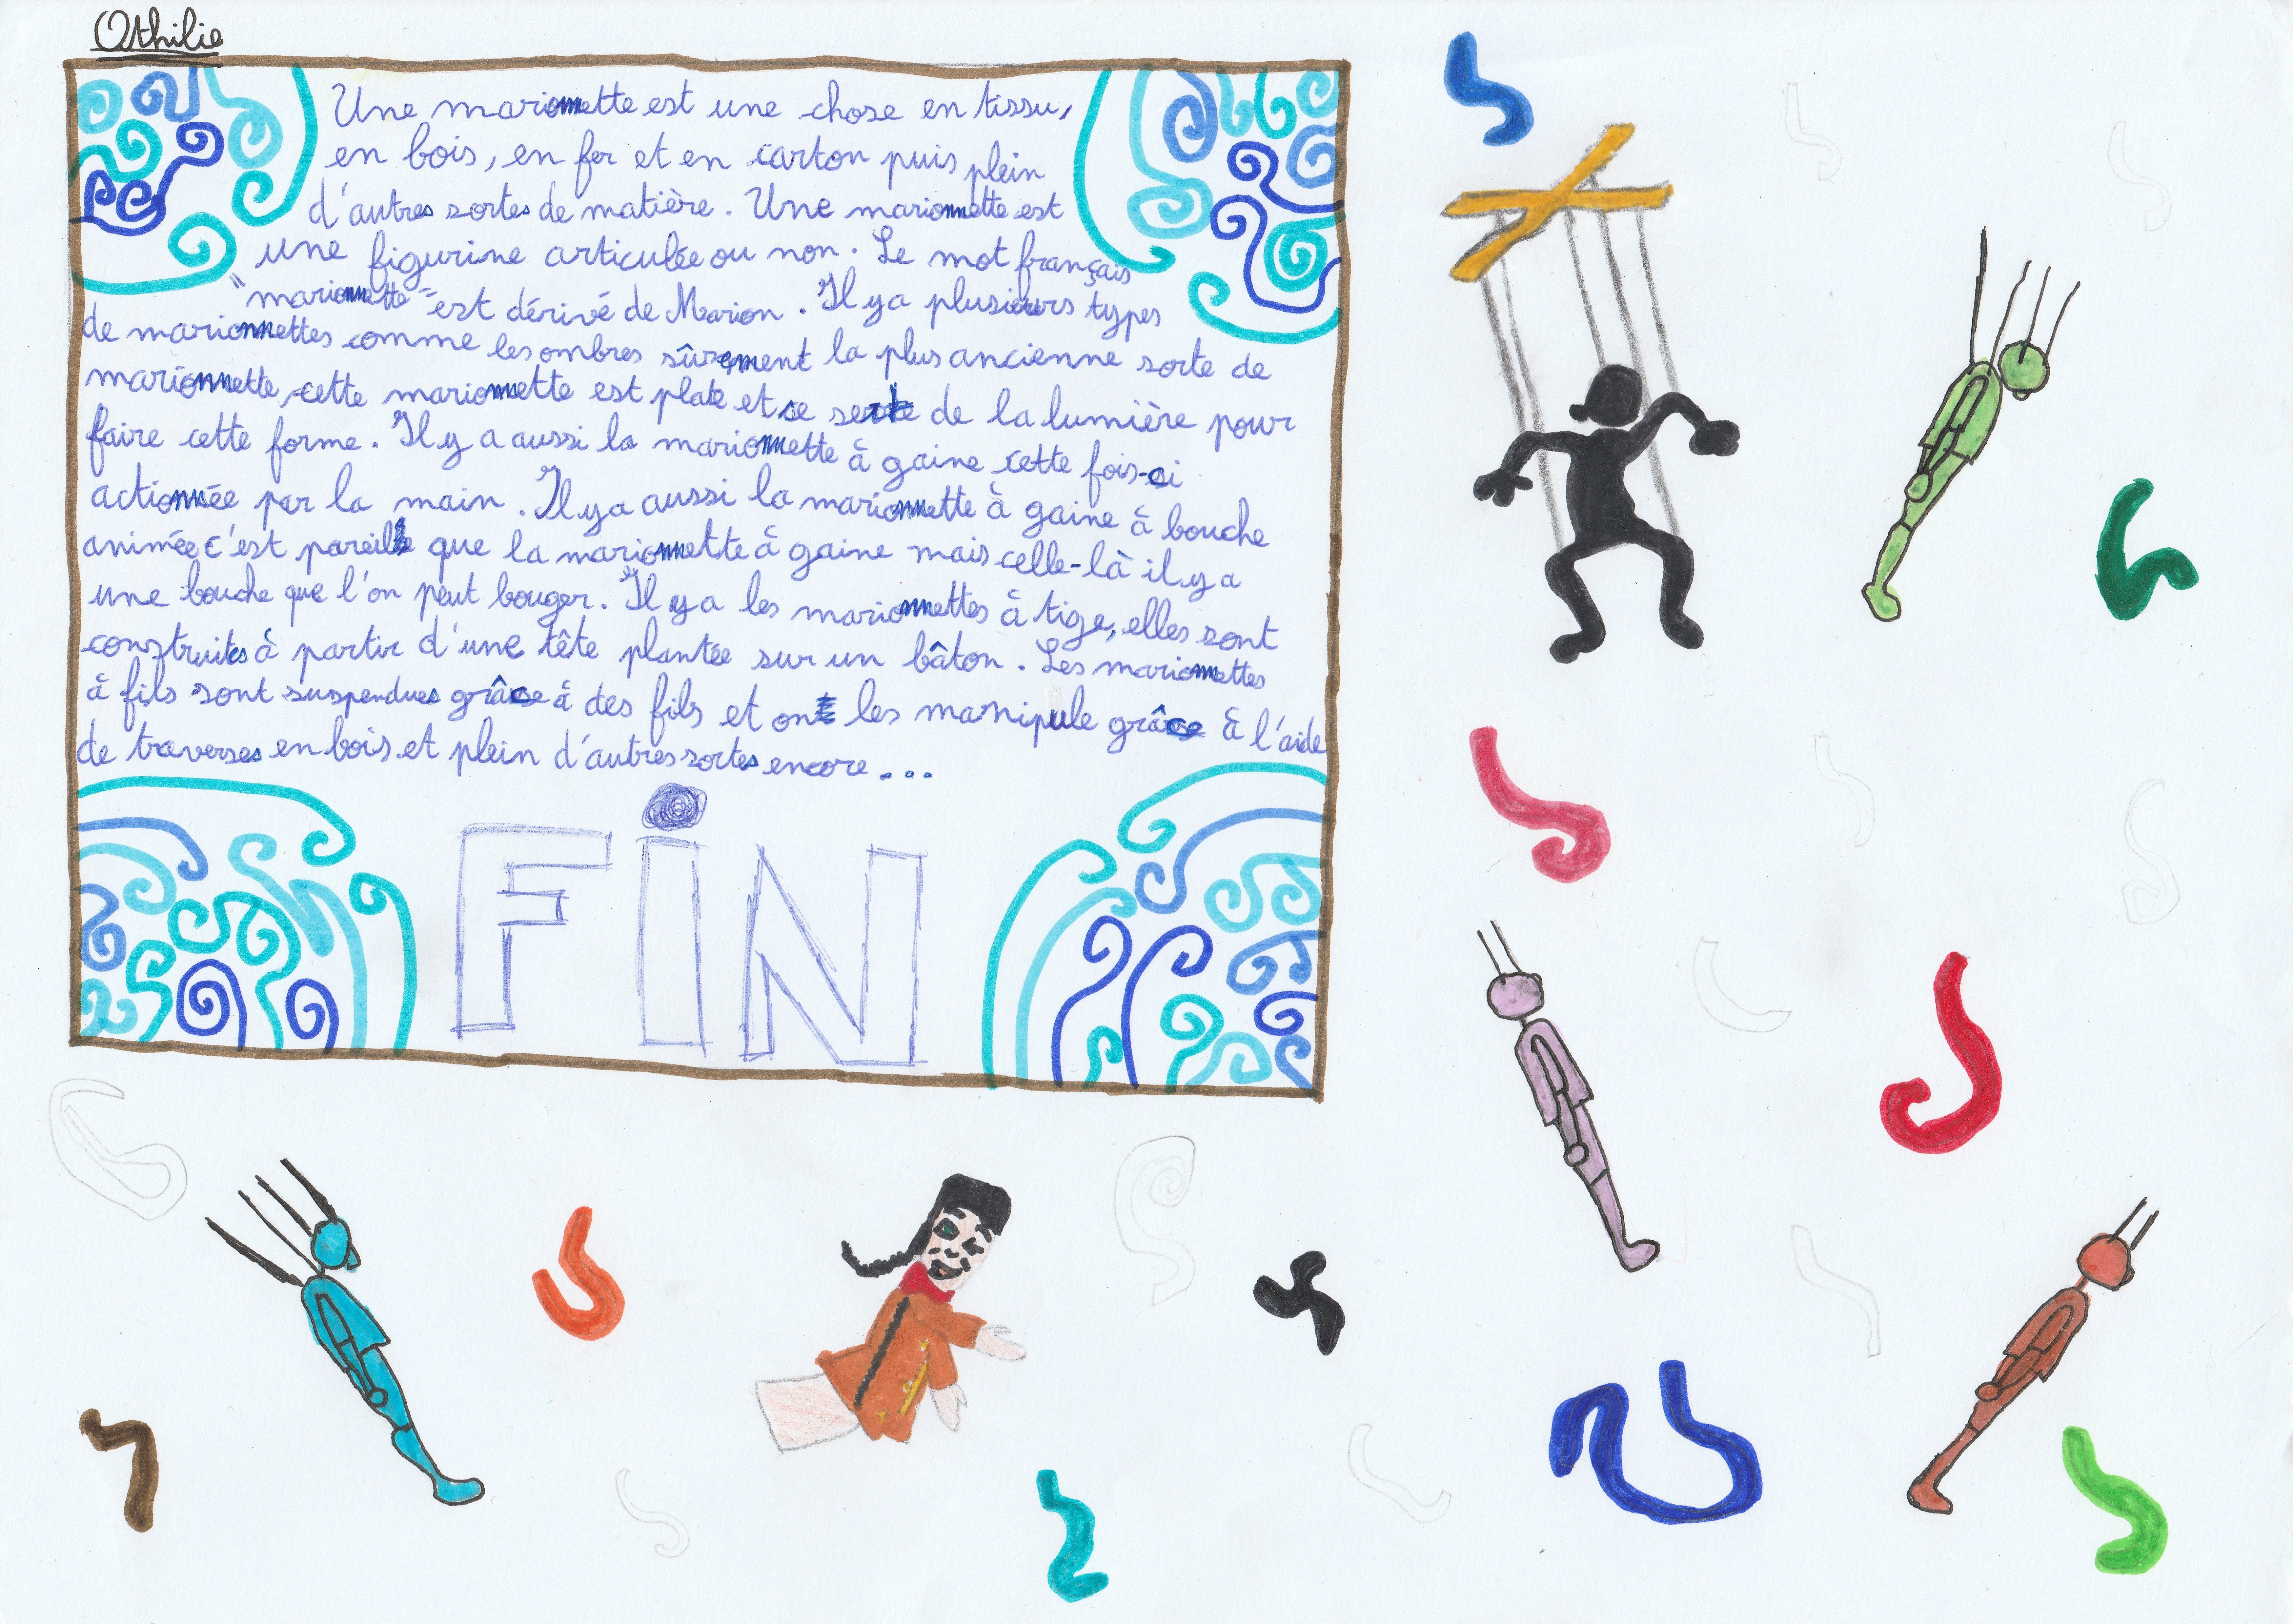 Othilie
Une marionnette est une chose en tissu,
en bois, en fer et en carton puis plein
d'autres sortes de matière. Une marionnette est
une figurine articulée ou non. Le mot français
"marionnette" est dérivé de Marion. Il y a plusieurs types
de marionnettes comme les ombres sûrement la plus ancienne sorte de
marionnette, cette marionnette est plate et se sert de la lumière pour
faire cette forme. Il y a aussi la marionnette à gaine cette fois-ci
actionnée par la main. Il y a aussi la marionnette à gaine à bouche
animée c'est pareil que la marionnette à gaine mais celle-là il y a
une bouche que l'on peut bouger. Il y a les marionnettes à tige, elles sont
construites à partir d'une tête plantée sur un bâton. Les marionnettes
à fils sont suspendues grâce à des fils et on les manipule grâce à l'aide
de traverses en bois et plein d'autres sortes encore...
FiN